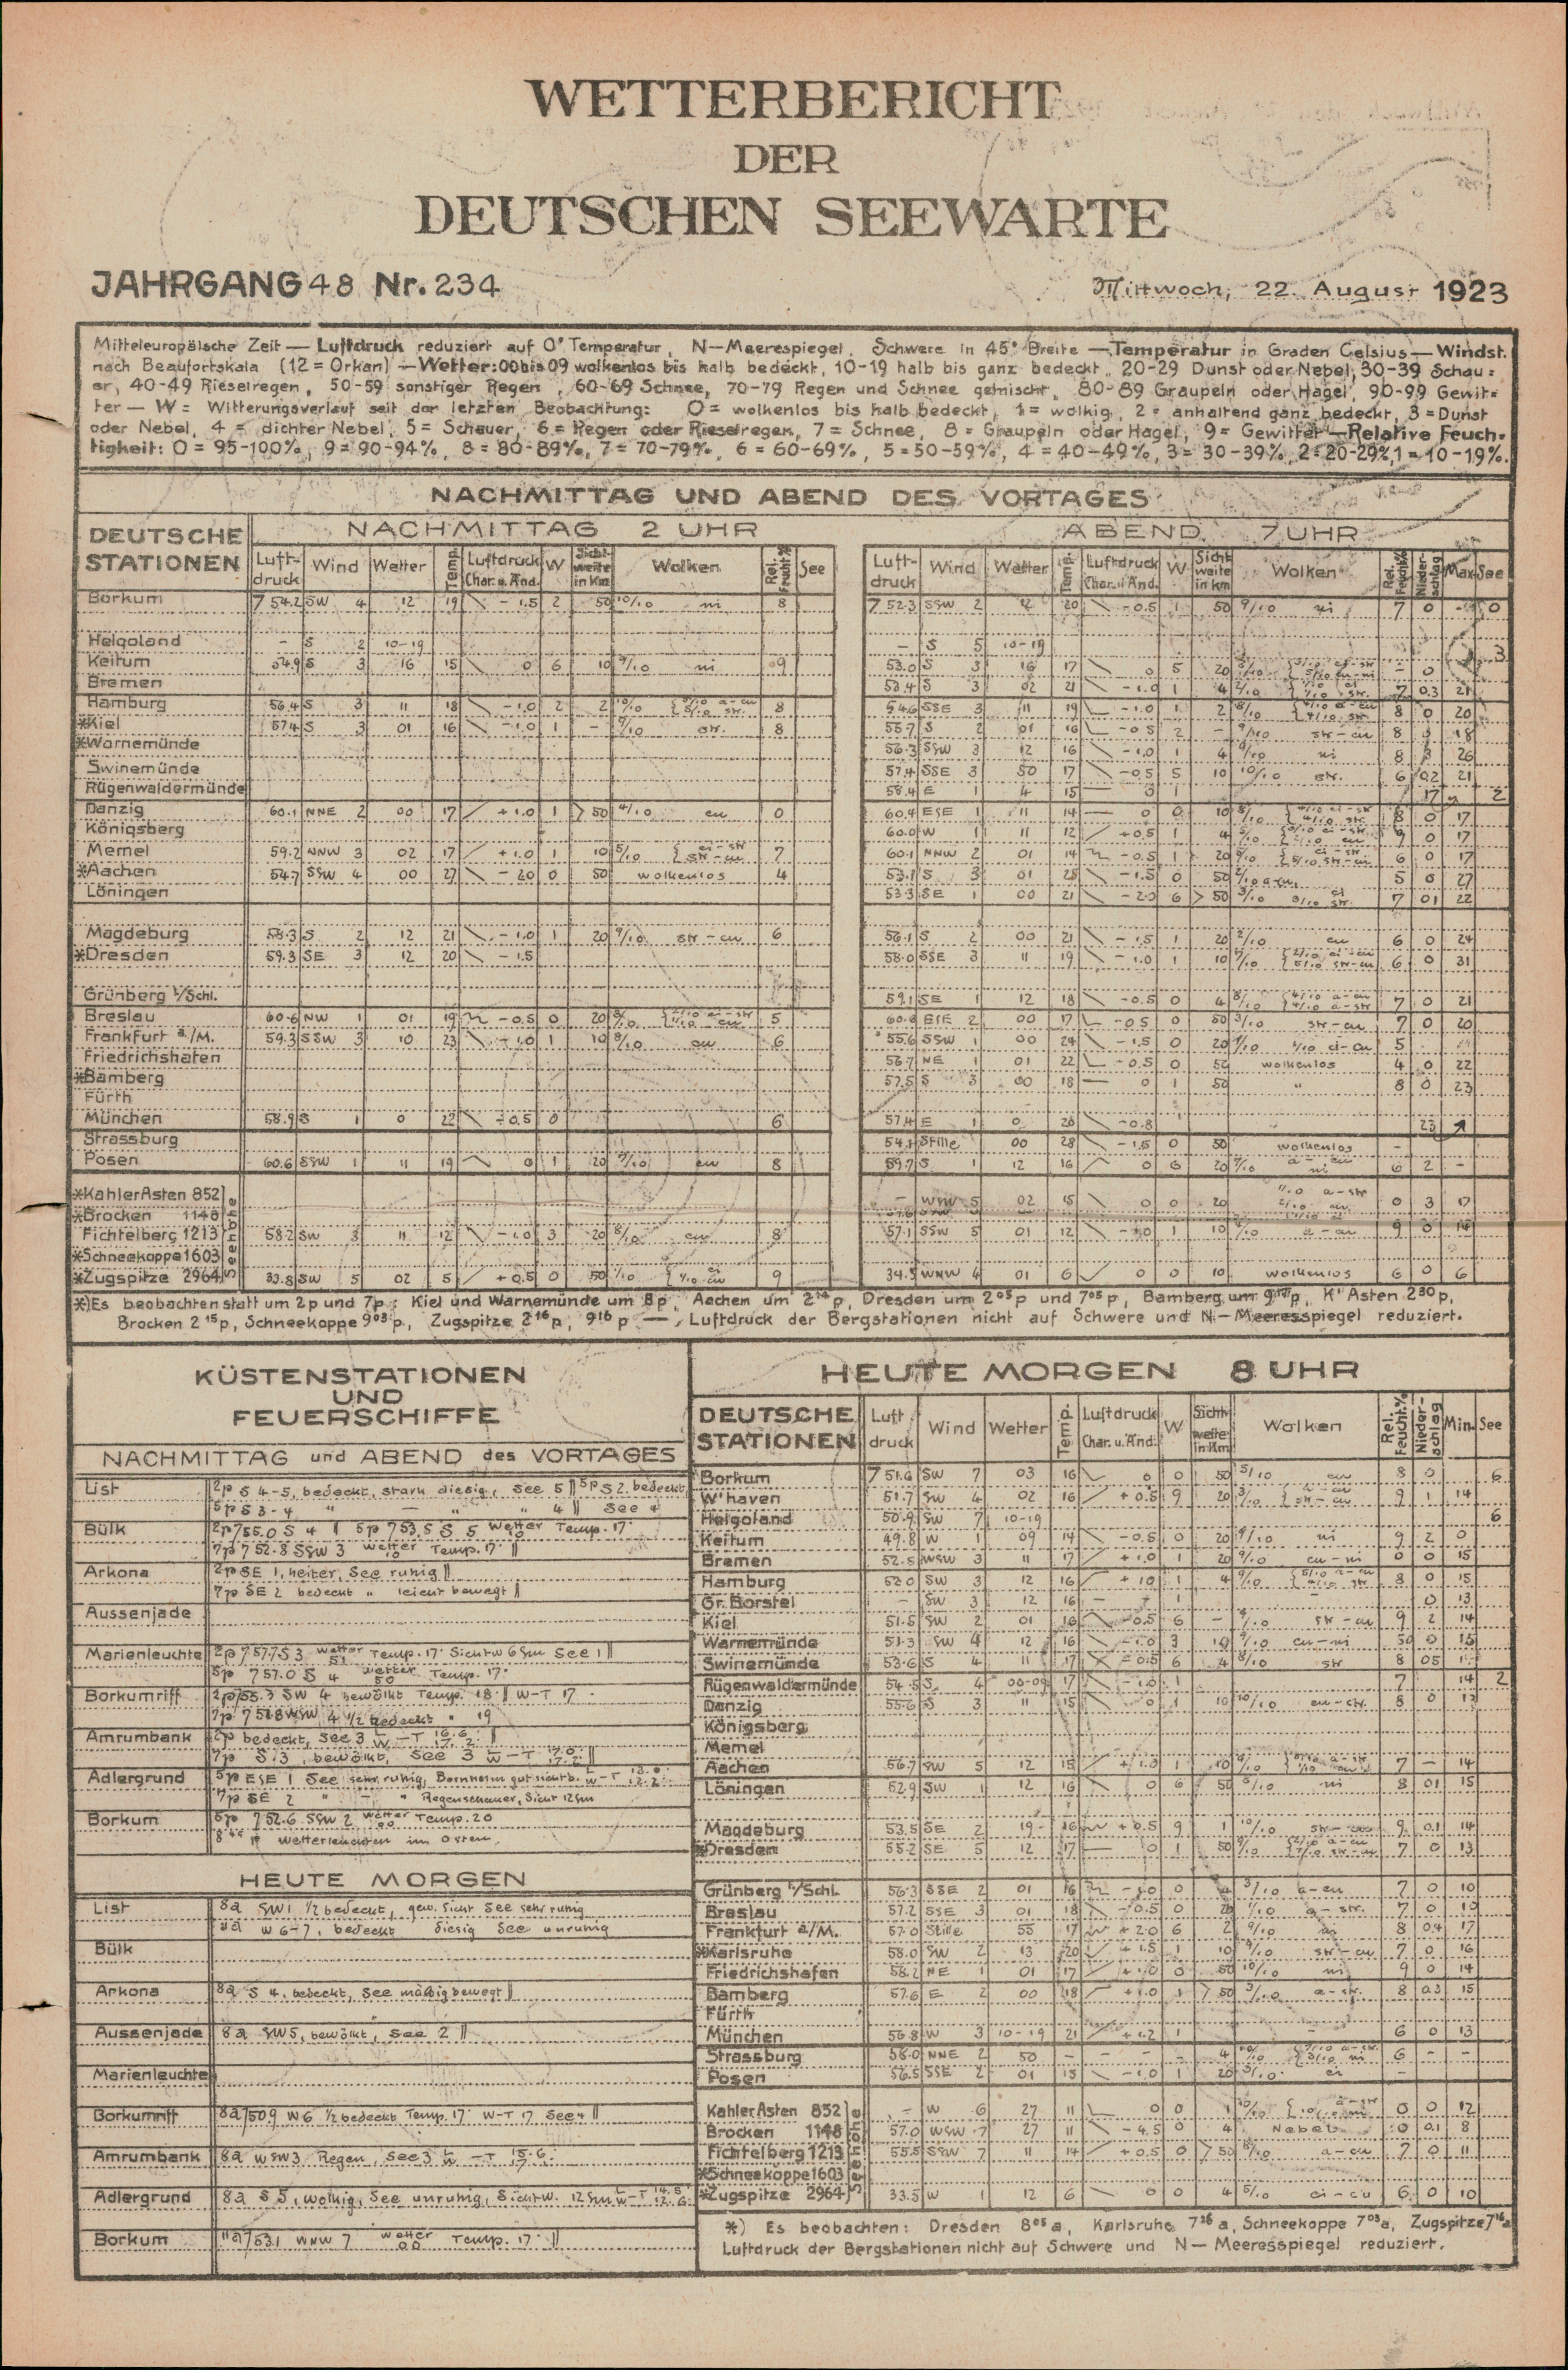 WETTERBERICHT
DER
DEUTSCHEN SEEWARTE
JAHRGANG 48 Nr. 234
Mittwoch, 22. August 1923
Mitteleuropäische Zeit — Luftdruck reduziert auf 0° Temperatur, N—Meerespiegel, Schwere in 45° Breite — Temperatur in Graden Celsius — Windst.
nach Beaufortskala (12 = Orkan) — Wetter: 00 bis 09 wolkenlos bis halb bedeckt, 10-19 halb bis ganz bedeckt, 20-29 Dunst oder Nebel, 30-39 Schau=
er, 40-49 Rieselregen, 50-59 sonstiger Regen, 60-69 Schnee, 70-79 Regen und Schnee gemischt, 80-89 Graupeln oder Hagel, 90-99 Gewit=
ter — W = Witterungsverlauf seit der letzten Beobachtung: 0 = wolkenlos bis halb bedeckt, 1 = wolkig, 2 = anhaltend ganz bedeckt, 3 = Dunst
oder Nebel, 4 = dichter Nebel, 5 = Schauer, 6 = Regen oder Rieselregen, 7 = Schnee, 8 = Graupeln oder Hagel, 9 = Gewitter — Relative Feuch=
tigkeit: 0 = 95-100%, 9 = 90-94%, 8 = 80-89%, 7 = 70-79%, 6 = 60-69%, 5 = 50-59%, 4 = 40-49%, 3 = 30-39%, 2 = 20-29%, 1 = 10-19%.
NACHMITTAG UND ABEND DES VORTAGES
DEUTSCHE STATIONEN
NACHMITTAG 2 UHR
ABEND 7 UHR
Luft-druck Wind Wetter Temp. Luftdruck Char. u. Änd. W Sicht-weite in Km Wolken Rel. Feucht.% See
Luft-druck Wind Wetter Temp. Luftdruck Char. u. Änd. W Sicht-weite in km Wolken Rel. Feucht.% Nieder-schlag Max. See
Borkum 754.2 SW 4 12 19 -1.5 2 50 10/10 ni 8 752.3 SSW 2 12 20 -0.5 1 50 9/10 ni 7 0 - 0
Helgoland - S 2 10-19 - S 5 10-19
Keitum 54.9 S 3 16 15 0 6 10 9/10 ni 9 53.0 S 3 16 17 0 5 20 - 0
Bremen 53.4 S 3 02 21 -1.0 1 4 7 0.3 21
Hamburg 56.4 S 3 11 18 -1.0 2 2 10/10 8 54.6 SSE 3 11 19 -1.0 1 2 8/10 8 0 20
*Kiel 57.4 S 3 01 16 -1.0 1 - 9/10 str. 8 55.7 S 2 01 16 -0.5 2 - 9/10 str-cu 8 18
*Warnemünde 56.3 SSW 3 12 16 -1.0 1 4 9/10 ni 8 26
Swinemünde 57.4 SSE 3 50 17 -0.5 5 10 10/10 str. 6 0.2 21
Rügenwaldermünde 58.4 E 1 4 15 1 17 2
Danzig 60.1 NNE 2 00 17 +1.0 1 >50 4/10 cu 0 60.4 ESE 1 11 14 0 0 10 8 0 17
Königsberg 60.0 W 1 11 12 +0.5 1 4 9 0 17
Memel 59.2 NNW 3 02 17 +1.0 1 10 5/10 ci-str str-cu 7 60.1 NNW 2 01 14 -0.5 1 20 6 0 17
*Aachen 54.7 SSW 4 00 27 -2.0 0 50 wolkenlos 4 53.1 S 3 01 25 -1.5 0 50 2/10 a-cu 5 0 27
Löningen 53.3 SE 1 00 21 -2.0 6 >50 3/10 7 01 22
Magdeburg 58.3 S 2 12 21 -1.0 1 20 9/10 str-cu 6 56.1 S 2 00 21 -1.5 1 20 2/10 cu 6 0 24
*Dresden 59.3 SE 3 12 20 -1.5 58.0 SSE 3 11 19 -1.0 1 10 6 0 31
Grünberg i/Schl. 59.1 SE 1 12 18 -0.5 0 4 8/10 4/10 a-cu 4/10 a-str 7 0 21
Breslau 60.6 NW 1 01 19 -0.5 0 20 5 60.8 ESE 2 00 17 -0.5 0 50 3/10 str-cu 7 0 20
Frankfurt a/M. 59.3 SSW 3 10 23 -1.0 1 10 8/10 cu 6 55.6 SSW 1 00 24 -1.5 0 20 1/10 1/10 ci-cu 5
Friedrichshafen 56.7 NE 1 01 22 -0.5 0 50 wolkenlos 4 0 22
*Bamberg 57.5 S 3 00 18 0 1 50 " 8 0 23
Fürth
München 58.9 S 1 0 22 -0.5 0 6 57.4 E 1 0 26 -0.8 23
Strassburg 54.1 Stille 00 28 -1.5 0 50 wolkenlos -
Posen 60.6 SSW 1 11 19 0 1 20 9/10 cu 8 59.7 S 1 12 16 0 6 20 6 2 -
Seehöhe
*Kahler Asten 852 - WSW 5 02 15 0 0 20 0 3 17
*Brocken 1148
Fichtelberg 1213 58.2 SW 3 11 12 -1.0 3 20 8/10 cu 8 57.1 SSW 5 01 12 -1.0 1 10 a-cu 9 0 14
*Schneekoppe 1603
*Zugspitze 2964 33.8 SW 5 02 5 +0.5 0 50 1/10 9 34.5 WNW 4 01 6 0 0 10 wolkenlos 6 0 6
*) Es beobachten statt um 2p und 7p: Kiel und Warnemünde um 8p, Aachen um 2¹⁴p, Dresden um 2⁰⁵p und 7⁰⁵p, Bamberg um p, K'Asten 2³⁰p,
Brocken 2¹⁵p, Schneekoppe 9⁰³p, Zugspitze 2¹⁶p, 9¹⁶p —, Luftdruck der Bergstationen nicht auf Schwere und N—Meeresspiegel reduziert.
KÜSTENSTATIONEN
UND
FEUERSCHIFFE
NACHMITTAG und ABEND des VORTAGES
List 2p S 4-5, bedeckt, stark diesig, See 5 || 5p S 2 bedeckt
5p S 3-4 " — " " 4 || See 4
Bülk 2p 755.0 S 4 || 5p 753.5 S 5 Wetter 10 Temp. 17
7p 752.8 SSW 3 Wetter 10 Temp. 17 ||
Arkona 2p SE 1, heiter, See ruhig ||
7p SE 2 bedeckt " leicht bewegt ||
Aussenjade
Marienleuchte 2p 757.7 S 3 Wetter 51 Temp. 17 Sichtw 6 Sm See 1 ||
5p 757.0 S 4 Wetter 50 Temp. 17
Borkumriff 2p 755.3 SW 4 bewölkt Temp. 18 || W-T 17
7p 751.8 WSW 4 1/2 bedeckt " 19
Amrumbank 2p bedeckt, See 3 L/W -T 16.6 17.2 ||
7p S 3, bewölkt, See 3 L/W -T 17.0 17.2 ||
Adlergrund 5p ESE 1 See sehr ruhig, Bornholm gut sichtb. L/W -T
7p SE 2 " — " Regenschauer, Sicht 12 Sm
Borkum 5p 752.6 SSW 2 Wetter 00 Temp. 20
Wetterleuchten im Osten.
HEUTE MORGEN
List 8a SW 1 1/2 bedeckt, gew. Sicht See sehr ruhig
W 6-7, bedeckt diesig See unruhig
Bülk
Arkona 8a S 4, bedeckt, See mäßig bewegt ||
Aussenjade 8a SW 5, bewölkt, See 2 ||
Marienleuchte
Borkumriff 8a 750.9 W 6 1/2 bedeckt Temp. 17 W-T 17 See 4 ||
Amrumbank 8a WSW 3 Regen, See 3 L/W -T 15.6 17.
Adlergrund 8a S 5, wolkig, See unruhig, Sichtw. 12 Sm L/W -T 14.5 12.6
Borkum 11a 753.1 WNW 7 Wetter 00 Temp. 17 ||
HEUTE MORGEN 8 UHR
DEUTSCHE STATIONEN Luft druck Wind Wetter Temp. Luftdruck Char. u. Änd. W Sicht-weite in Km Wolken Rel. Feucht.% Nieder-schlag Min. See
Borkum 751.6 SW 7 03 16 0 0 50 5/10 cu 8 0 6
W'haven 51.7 SW 4 02 16 +0.5 9 20 3/10 9 1 14
Helgoland 50.9 SW 7 10-19 6
Keitum 49.8 W 1 09 14 -0.5 0 20 9/10 ni 9 2 0
Bremen 52.5 WSW 3 11 17 +1.0 1 20 9/10 cu-ni 0 0 15
Hamburg 52.0 SW 3 12 16 +1.0 1 4 9/10 8 0 15
Gr. Borstel - SW 3 12 16 - 1 0 13
Kiel 51.5 SW 2 01 16 -0.5 6 - 9/10 str-cu 9 2 14
Warnemünde 51.3 SW 4 12 16 -1.0 3 10 9/10 cu-ni 0 15
Swinemünde 53.6 S 4 11 17 -0.5 6 4 8/10 str 8 05
Rügenwaldermünde 54.5 S 4 00-09 17 -1.0 1 7 14 2
Danzig 55.6 S 3 11 15 0 1 10 10/10 cu-str. 8 0 13
Königsberg
Memel
Aachen 56.7 SW 5 12 15 +1.0 1 10 7 — 14
Löningen 52.9 SW 1 12 16 0 6 50 ni 8 01 15
Magdeburg 53.5 SE 2 19 16 +0.5 9 1 10/10 9 0.1 14
*Dresden 55.2 SE 5 12 17 0 1 50 9/10 2/10 a-cu 7/10 str-cu 7 0 13
Grünberg i/Schl. 56.3 SSE 2 01 16 -1.0 0 3/10 a-cu 7 0 10
Breslau 57.2 SSE 3 01 18 -0.5 0 1/10 a-str. 7 0 10
Frankfurt a/M. 57.0 Stille 55 17 +2.0 6 2 9/10 ni 8 0.4 17
*Karlsruhe 58.0 SW 2 13 20 +1.5 1 10 9/10 str-cu 7 0 16
Friedrichshafen 58.2 NE 1 01 17 +1.0 0 50 10/10 ni 9 0 14
Bamberg 57.6 E 2 00 18 +1.0 1 >50 3/10 a-str. 8 0.3 15
Fürth
München 56.8 W 3 10-19 21 +1.2 1 - 6 0 13
Strassburg 58.0 NNE 2 50 - - - - 4 10/10 6 - -
Posen 56.5 SSE 2 01 15 -1.0 1 20 ci -
Seehöhe
Kahler Asten 852 - W 6 27 11 0 0 1 10/10 0 0 12
Brocken 1148 57.0 WSW 7 27 11 -4.5 0 4 Nebel 0 0.1 8
Fichtelberg 1213 55.5 SSW 7 11 14 +0.5 0 >50 8/10 a-cu 7 0 11
*Schneekoppe 1603
*Zugspitze 2964 33.5 W 1 12 6 0 0 4 5/10 ci-cu 6 0 10
*) Es beobachten: Dresden 8⁰⁵a, Karlsruhe 7²⁶a, Schneekoppe 7⁰³a, Zugspitze 7¹⁶a
Luftdruck der Bergstationen nicht auf Schwere und N—Meeresspiegel reduziert.